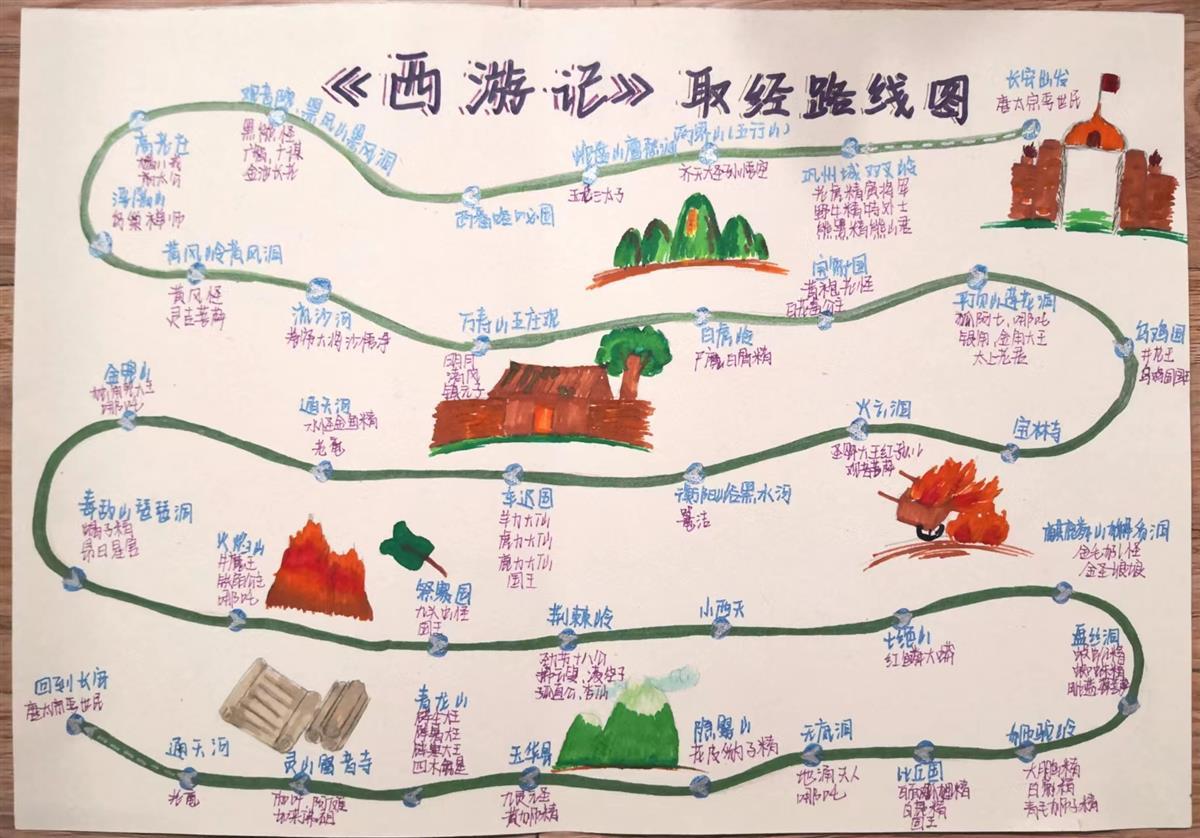 《西游记》取经路线图
长安出发
唐太宗李世民
巩州城双叉岭
老虎精寅将军
野牛精特处士
熊罴精熊山君
两界山(五行山)
齐天大圣孙悟空
蛇盘山鹰愁涧
玉龙三太子
西番哈咇国
观音院,黑风山黑风洞
黑熊怪
广智,广谋
金池长老
高老庄
猪八戒
高太公
浮屠山
乌巢禅师
黄风岭黄风洞
黄风怪
灵吉菩萨
流沙河
卷帘大将沙悟净
万寿山五庄观
明月
清风
镇元子
白虎岭
尸魔白骨精
宝象国
黄袍老怪
百花羞公主
平顶山莲花洞
狐阿七,哪吒
银角,金角大王
太上老君
乌鸡国
井龙王
乌鸡国国王
宝林寺
火云洞
圣婴大王红孩儿
观音菩萨
衡阳峪黑水河
鼍洁
车迟国
羊力大仙
虎力大仙
鹿力大仙
国王
通天河
水怪金鱼精
老鼋
金兜山
哪吒
毒敌山琵琶洞
蝎子精
昴日星官
火焰山
牛魔王
铁扇公主
哪吒
祭赛国
九头虫怪
国王
荆棘岭
劲节十八公
孤直公,杏仙
小西天
七绝山
红鳞大蟒
麒麟山獬豸洞
金毛犼怪
金圣娘娘
盘丝洞
狮驼岭
大鹏精
白象精
青毛狮子精
比丘国
国王
无底洞
地涌夫人
哪吒
隐雾山
花皮豹子精
玉华县
九灵元圣
黄狮精
青龙山
四木禽星
灵山雷音寺
如来佛祖
通天河
老鼋
回到长安
唐太宗李世民